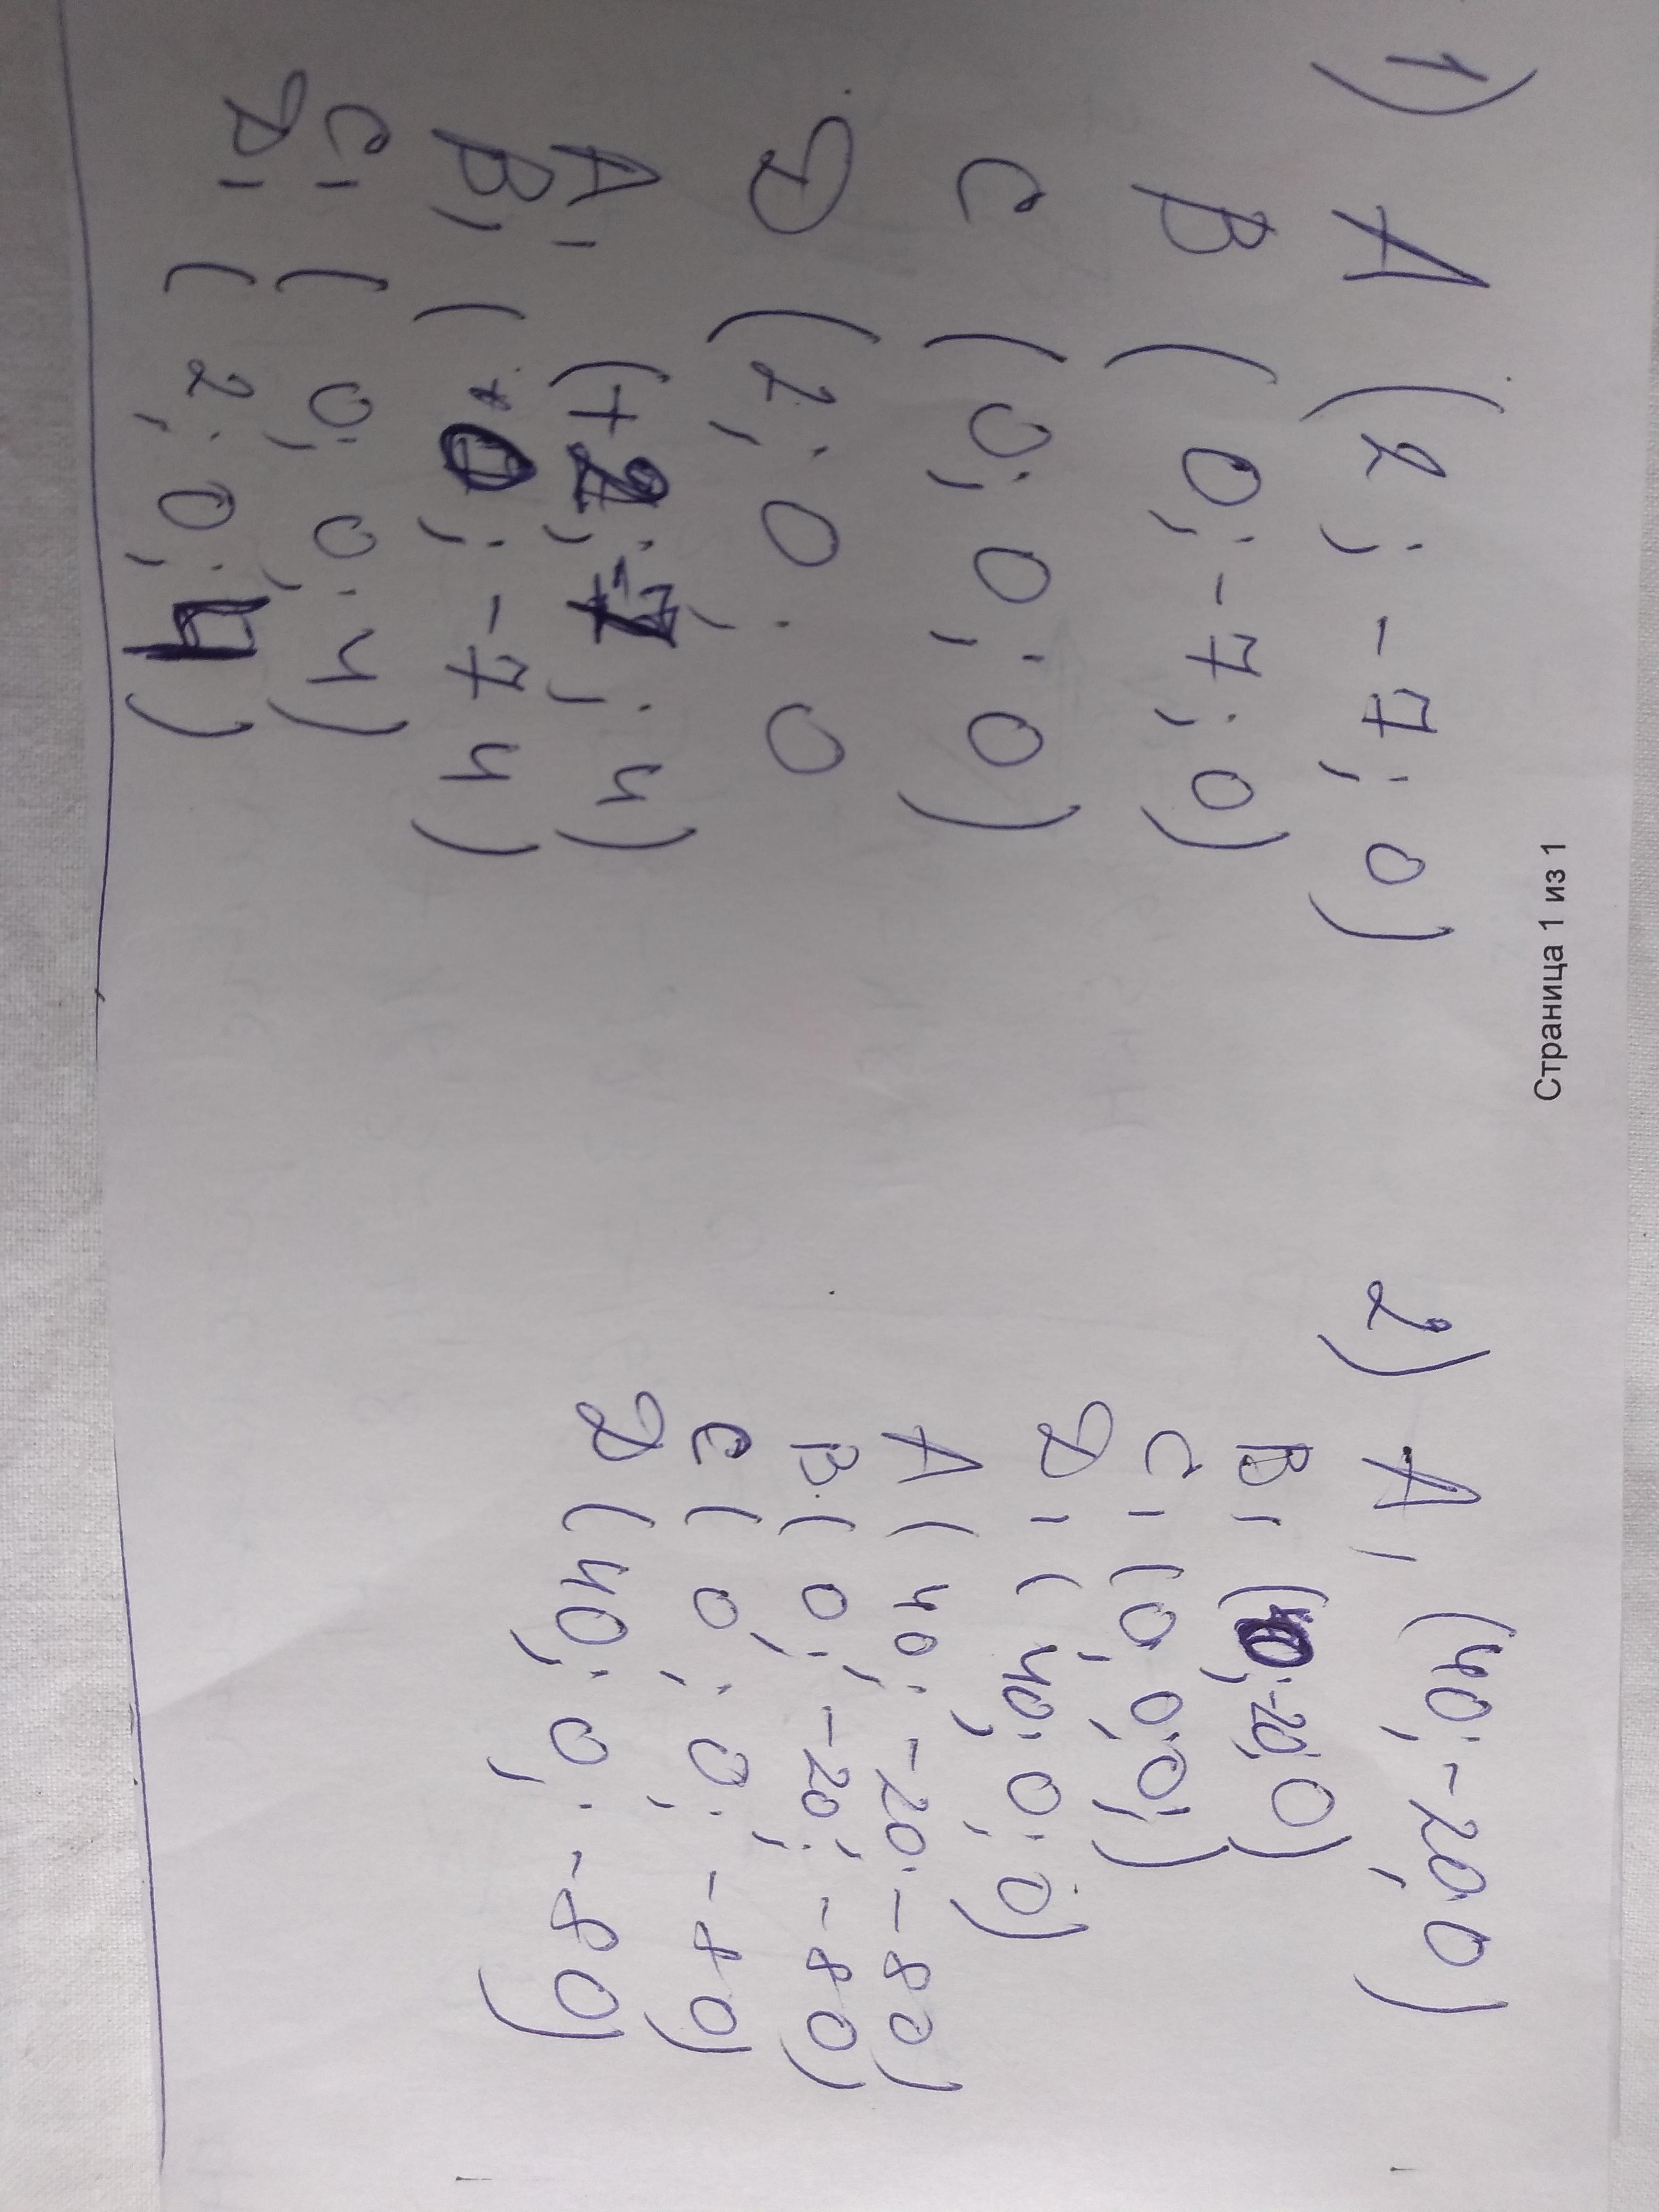 1) A (2; -7; 0)
B (0; -7; 0)
C (0; 0; 0)
D (2; 0; 0
A' (+2; -7; 4)
B' (0; -7 4)
C' (0; 0; 4)
D' (2; 0; 4)
2) A' (40; -20; 0)
B' (0; -20; 0)
C' (0; 0; 0;)
D' (40; 0; 0)
A (40; -20; -80)
B (0; -20; -80)
C (0; 0; -80)
D (40; 0; -80)
Страница 1 из 1